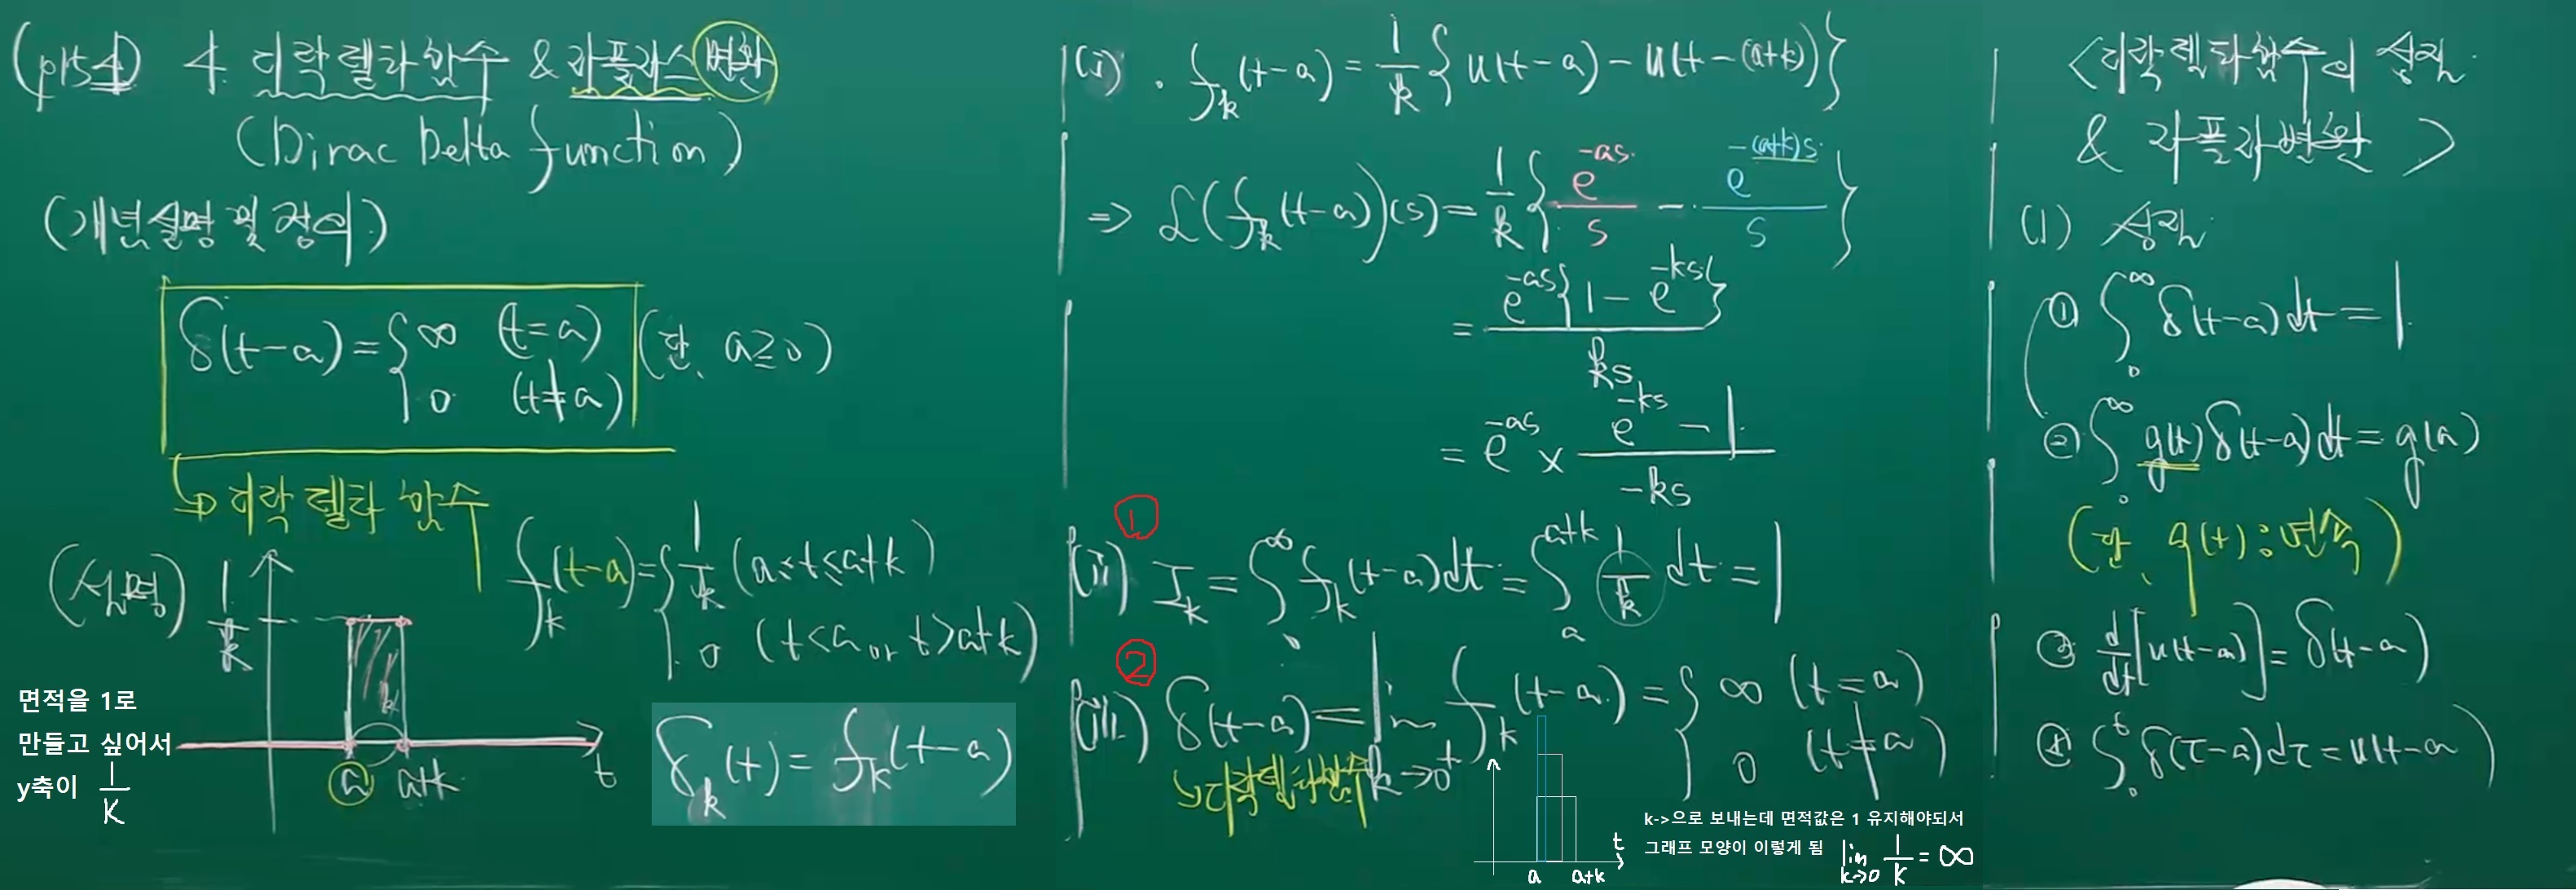 (p154) 4. 디락 델타 함수 & 라플라스 변환
(Dirac Delta function)
(개념설명 및 정의)
δ(t-a) = { ∞ (t=a) (단, a≥0)
0 (t≠a)
↳ 디락 델타 함수
(설명)
1/k
f_k(t-a) = { 1/k (a≤t≤a+k)
0 (t<a or t>a+k)
k
a a+k t
면적을 1로
만들고 싶어서
y축이 1/k
δ_k(t) = f_k(t-a)
(i) · f_k(t-a) = 1/k { u(t-a) - u(t-(a+k)) }
⇒ ℒ(f_k(t-a))(s) = 1/k { e^{-as}/s - e^{-(a+k)s}/s }
= e^{-as}{1 - e^{-ks}} / ks
= e^{-as} × (e^{-ks} - 1) / -ks
①
(ii) I_k = ∫_0^∞ f_k(t-a)dt = ∫_a^{a+k} 1/k dt = 1
②
(iii) δ(t-a) = lim_{k→0+} f_k(t-a) = { ∞ (t=a)
0 (t≠a)
↳ 디락델타함수
t
a a+k
k->으로 보내는데 면적값은 1 유지해야되서
그래프 모양이 이렇게 됨 lim_{k→0} 1/k = ∞
<디락 델타함수의 성질
& 라플라변환>
(1) 성질
① ∫_0^∞ δ(t-a)dt = 1
② ∫_0^∞ g(t)δ(t-a)dt = g(a)
(단, g(t): 연속)
③ d/dt[u(t-a)] = δ(t-a)
④ ∫_0^t δ(τ-a)dτ = u(t-a)